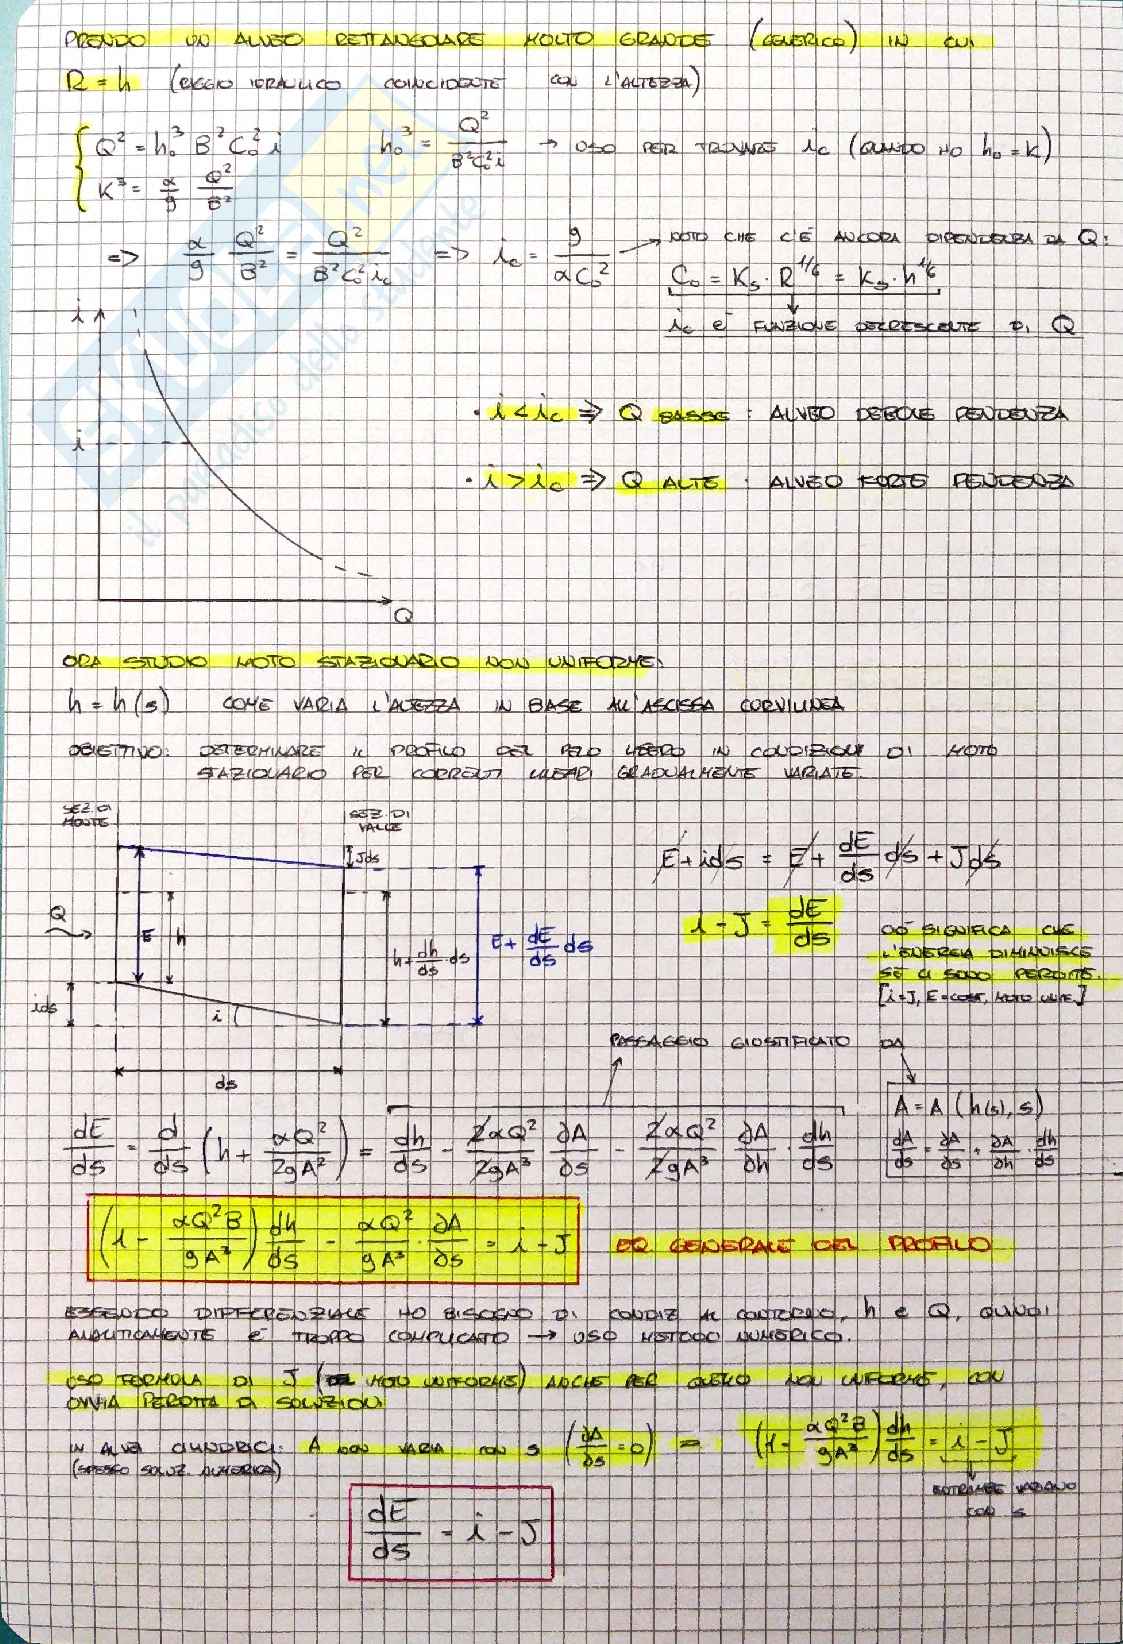 PRENDO UN ALVEO RETTANGOLARE MOLTO GRANDE (GENERICO) IN CUI
R = h (RAGGIO IDRAULICO COINCIDENTE CON L'ALTEZZA)
Q² = h₀³ B² C₀² i    h₀³ = Q² / B²C₀²i → USO PER TROVARE i_c (QUANDO HO h₀ = K)
K³ = α/g Q²/B²
=> α/g Q²/B² = Q² / B²C₀²i_c => i_c = g / αC₀² → NOTO CHE C'È ANCORA DIPENDENZA DA Q:
C₀ = K_s · R^1/6 = K_s · h^1/6
i_c È FUNZIONE DECRESCENTE DI Q
i
i
Q
· i < i_c => Q BASSE : ALVEO DEBOLE PENDENZA
· i > i_c => Q ALTE : ALVEO FORTE PENDENZA
ORA STUDIO MOTO STAZIONARIO NON UNIFORME:
h = h(s) COME VARIA L'ALTEZZA IN BASE ALL'ASCISSA CURVILINEA
OBIETTIVO: DETERMINARE IL PROFILO DEL PELO LIBERO IN CONDIZIONI DI MOTO
STAZIONARIO PER CORRENTI LINEARI GRADUALMENTE VARIATE.
SEZ. DI MONTE
SEZ. DI VALLE
Jds
Q
E
h
h + dh/ds ds
E + dE/ds ds
ids
i
ds
E + ids = E + dE/ds ds + Jds
i - J = dE/ds
CIÒ SIGNIFICA CHE
L'ENERGIA DIMINUISCE
SE CI SONO PERDITE.
[i=J, E=COST, MOTO UNIF.]
PASSAGGIO GIUSTIFICATO DA
A = A (h(s), s)
dA/ds = ∂A/∂s + ∂A/∂h · dh/ds
dE/ds = d/ds (h + αQ²/2gA²) = dh/ds - 2αQ²/2gA³ ∂A/∂s - 2αQ²/2gA³ ∂A/∂h · dh/ds
(1 - αQ²B/gA³) dh/ds - αQ²/gA³ · ∂A/∂s = i - J    EQ GENERALE DEL PROFILO
ESSENDO DIFFERENZIALE HO BISOGNO DI CONDIZ AL CONTORNO, h E Q, QUINDI
ANALITICAMENTE È TROPPO COMPLICATO → USO METODO NUMERICO.
USO FORMULA DI J ( MOTO UNIFORME) ANCHE PER QUELLO NON UNIFORME, CON
OVVIA PERDITA DI SOLUZIONI
IN ALVEI CILINDRICI: A NON VARIA CON s (∂A/∂s = 0) = (1 - αQ²B/gA³) dh/ds = i - J
(SPESSO SOLUZ. NUMERICA)
ENTRAMBE VARIANO
CON s
dE/ds = i - J
SKUOLA.net
il paradiso dello studente